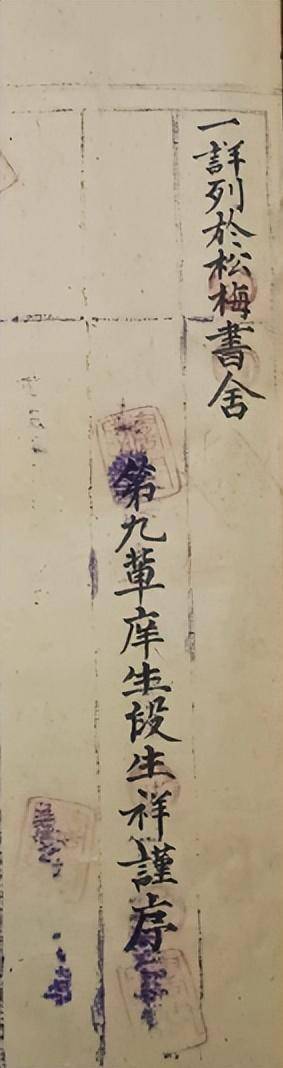 一詳列於松梅書舍
第九輩庠生段生祥謹序